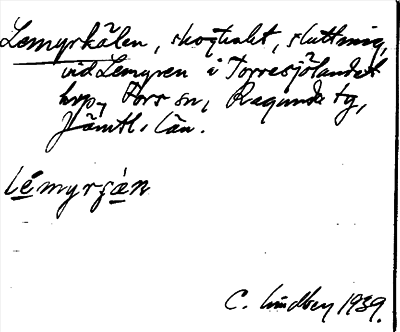 Lemyrkälen, skogtrakt, sluttning,
vid Lemyren i Torresjölandet
hrp, Fors sn, Ragunda tg,
Jämtl. län.
lémyrçàn
C. Lindberg 1939.